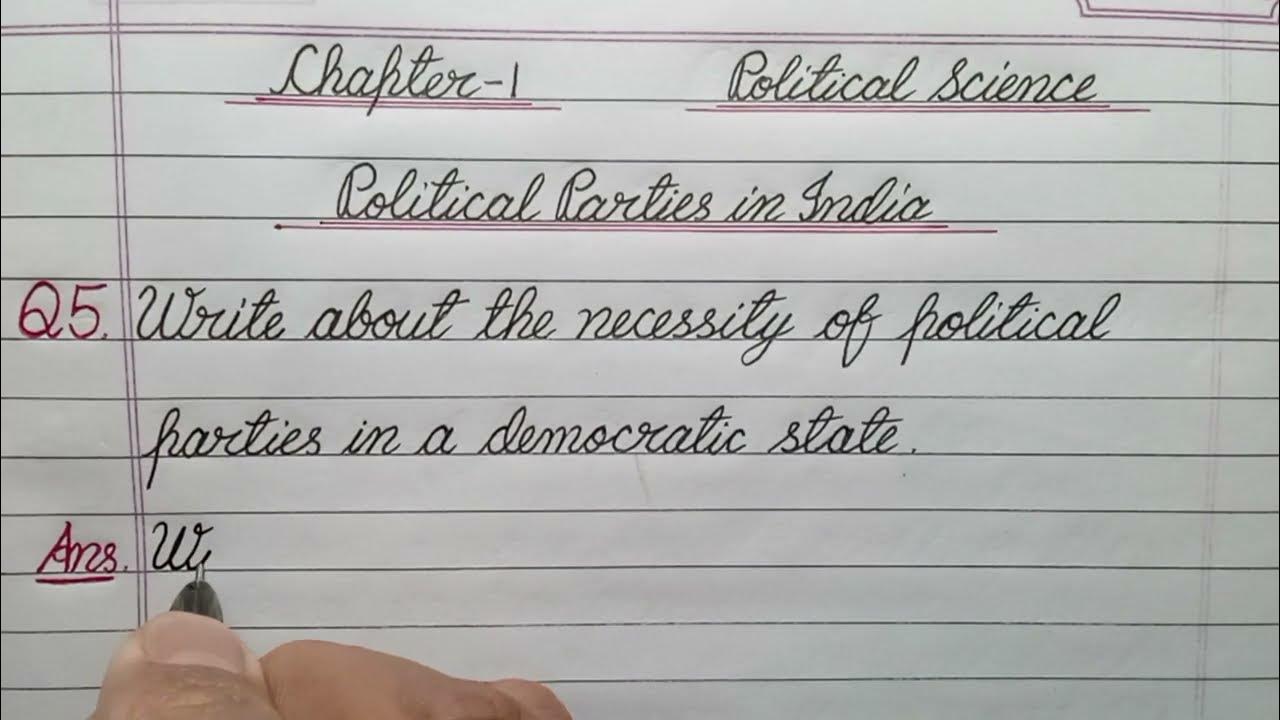 Chapter-1 Political Science
Political Parties in India
Q5. Write about the necessity of political
parties in a democratic state.
Ans. W